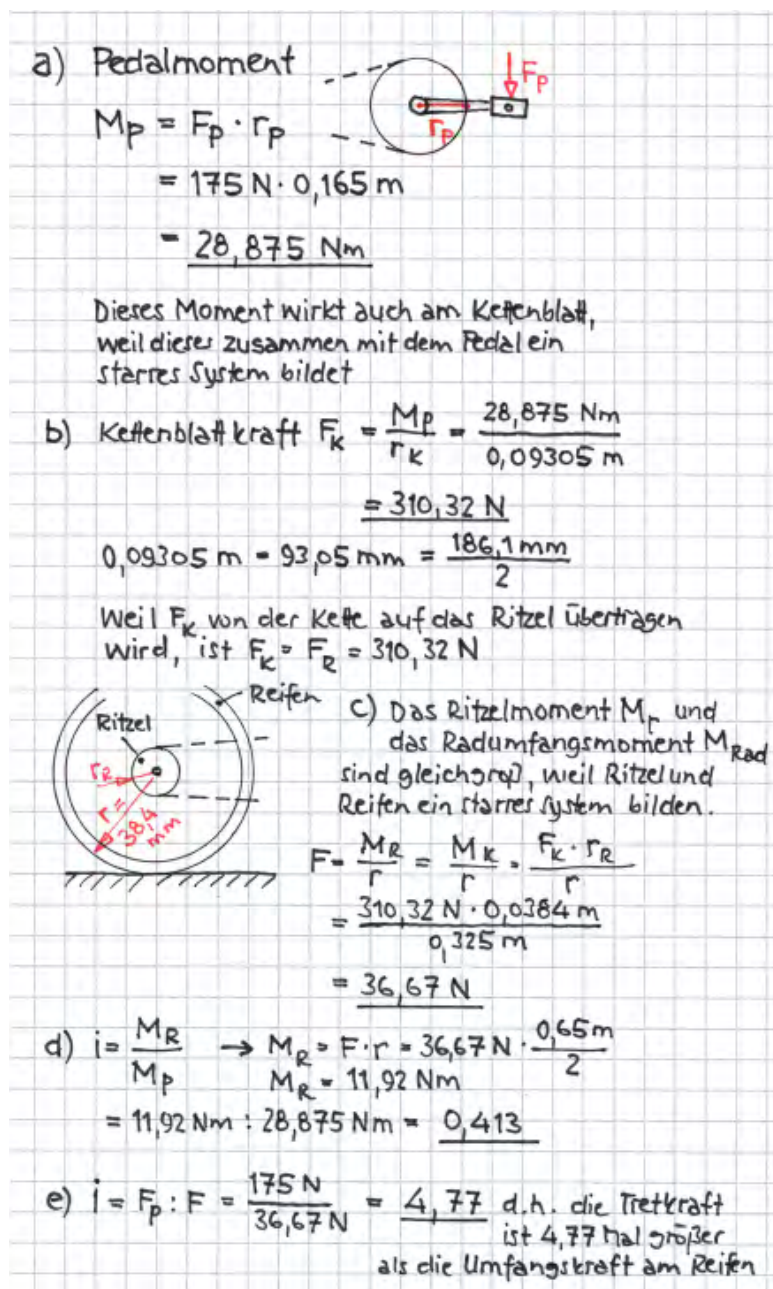 a) Pedalmoment
F_P
r_P
M_P = F_P · r_P
= 175 N · 0,165 m
= 28,875 Nm
Dieses Moment wirkt auch am Kettenblatt,
weil dieses zusammen mit dem Pedal ein
starres System bildet
b) Kettenblattkraft F_K = M_P / r_K = 28,875 Nm / 0,09305 m
= 310,32 N
0,09305 m = 93,05 mm = 186,1 mm / 2
Weil F_K von der Kette auf das Ritzel übertragen
wird, ist F_K = F_R = 310,32 N
Reifen
Ritzel
r_R
r =
38,4
mm
c) Das Ritzelmoment M_r und
das Radumfangsmoment M_Rad
sind gleichgroß, weil Ritzel und
Reifen ein starres System bilden.
F = M_R / r = M_K / r = F_K · r_R / r
= 310,32 N · 0,0384 m / 0,325 m
= 36,67 N
d) i = M_R / M_P → M_R = F · r = 36,67 N · 0,65 m / 2
M_R = 11,92 Nm
= 11,92 Nm : 28,875 Nm = 0,413
e) i = F_P : F = 175 N / 36,67 N = 4,77 d.h. die Tretkraft
ist 4,77 Mal größer
als die Umfangskraft am Reifen